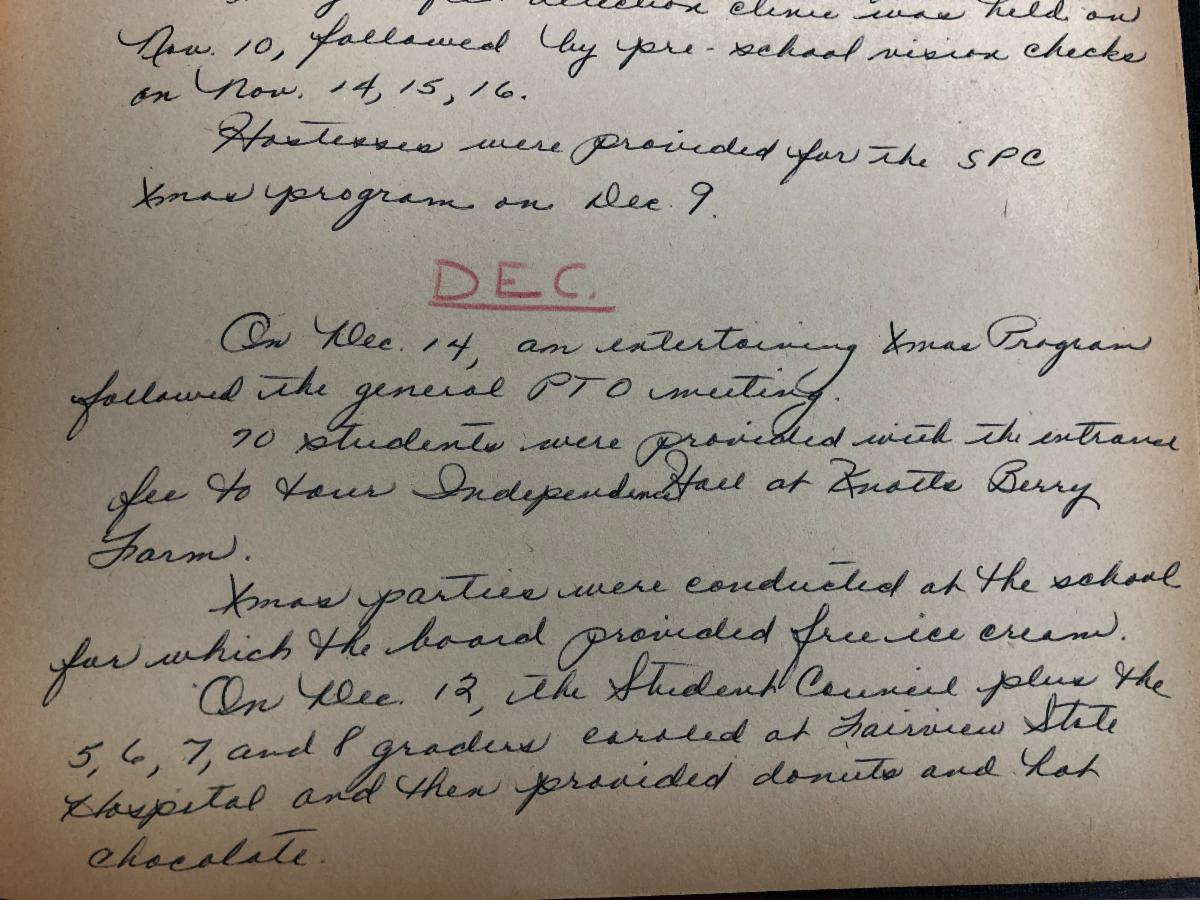 detection clinic was held on
Nov. 10, followed by pre-school vision checks
on Nov. 14, 15, 16.
Hostesses were provided for the SPC
Xmas program on Dec. 9.
DEC.
On Dec. 14, an entertaining Xmas Program
followed the general PTO meeting.
70 students were provided with the entrance
fee to tour Independence Hall at Knotts Berry
Farm.
Xmas parties were conducted at the school
for which the board provided free ice cream.
On Dec. 12, the Student Council plus the
5, 6, 7, and 8 graders caroled at Fairview State
Hospital and then provided donuts and hot
chocolate.